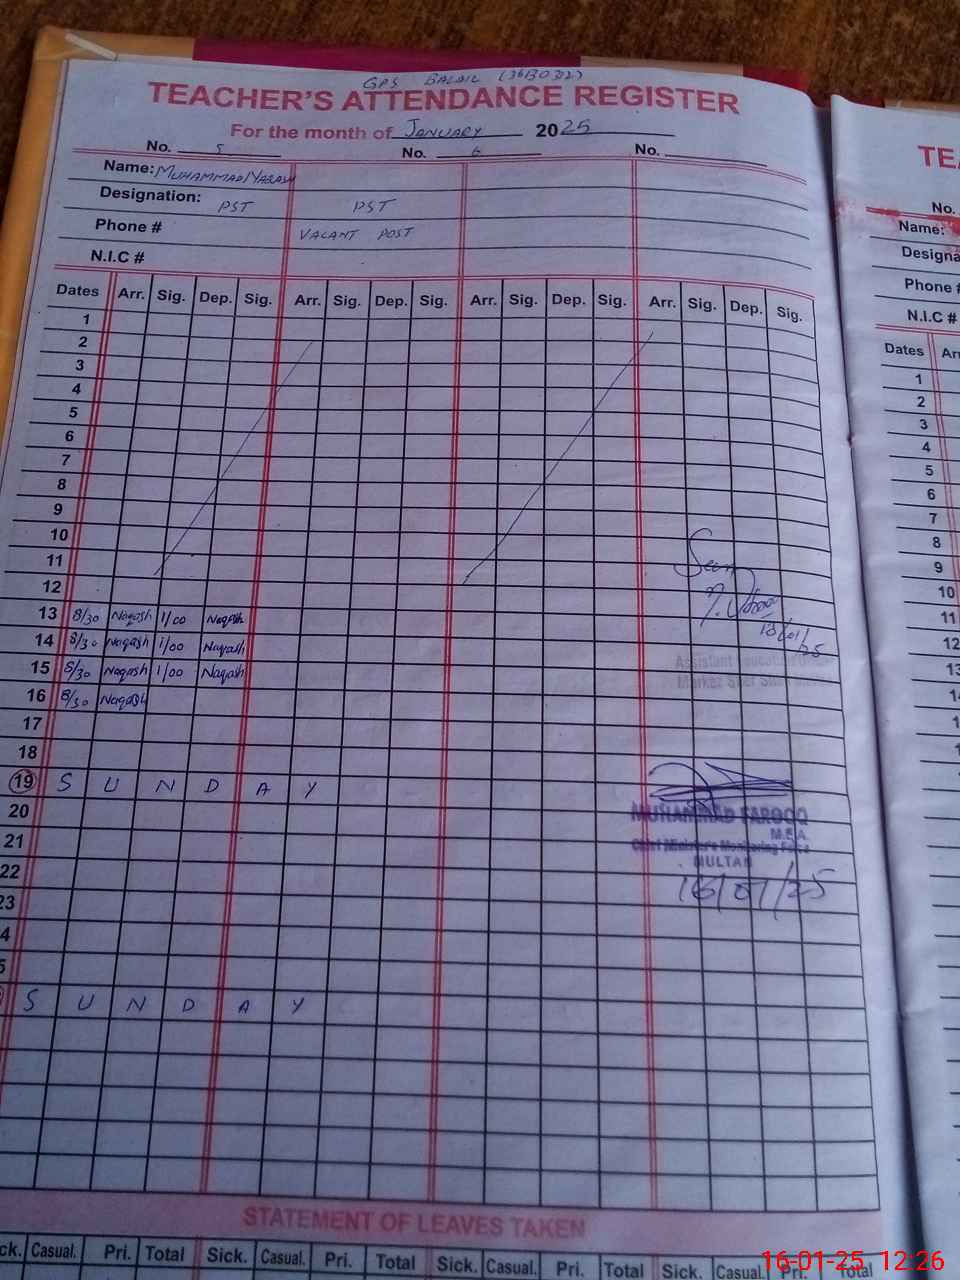 GPS BALAIL (36130312)
TEACHER'S ATTENDANCE REGISTER
For the month of JANUARY 2025
No. 5 No. 6 No.
Name: MUHAMMAD
Designation: PST PST
Phone # VACANT POST
N.I.C #
Dates Arr. Sig. Dep. Sig. Arr. Sig. Dep. Sig. Arr. Sig. Dep. Sig. Arr. Sig. Dep. Sig.
1
2
3
4
5
6
7
8
9
10
11
12
13 8/30 Naqash 1/00 Naqash
14 8/30 Naqash 1/00 Naqash
15 8/30 Naqash 1/00 Naqash
16 8/30 Naqash
17
18
19 S U N D A Y
20
21
22
23
4
5
S U N D A Y
Seen
13/01/25
Assistant Education
Markez Sher Shah
MUHAMMAD FAROOQ
M.E.A.
Chief Minister's Monitoring Force
MULTAN
16/01/25
STATEMENT OF LEAVES TAKEN
ck. Casual. Pri. Total Sick. Casual. Pri. Total Sick. Casual. Pri. Total Sick. Casual. Pri. Total
TE
No.
Name:
Designa
Phone #
N.I.C #
Dates Arr
1
2
3
4
5
6
7
8
9
10
11
12
13
14
16-01-25 12:26